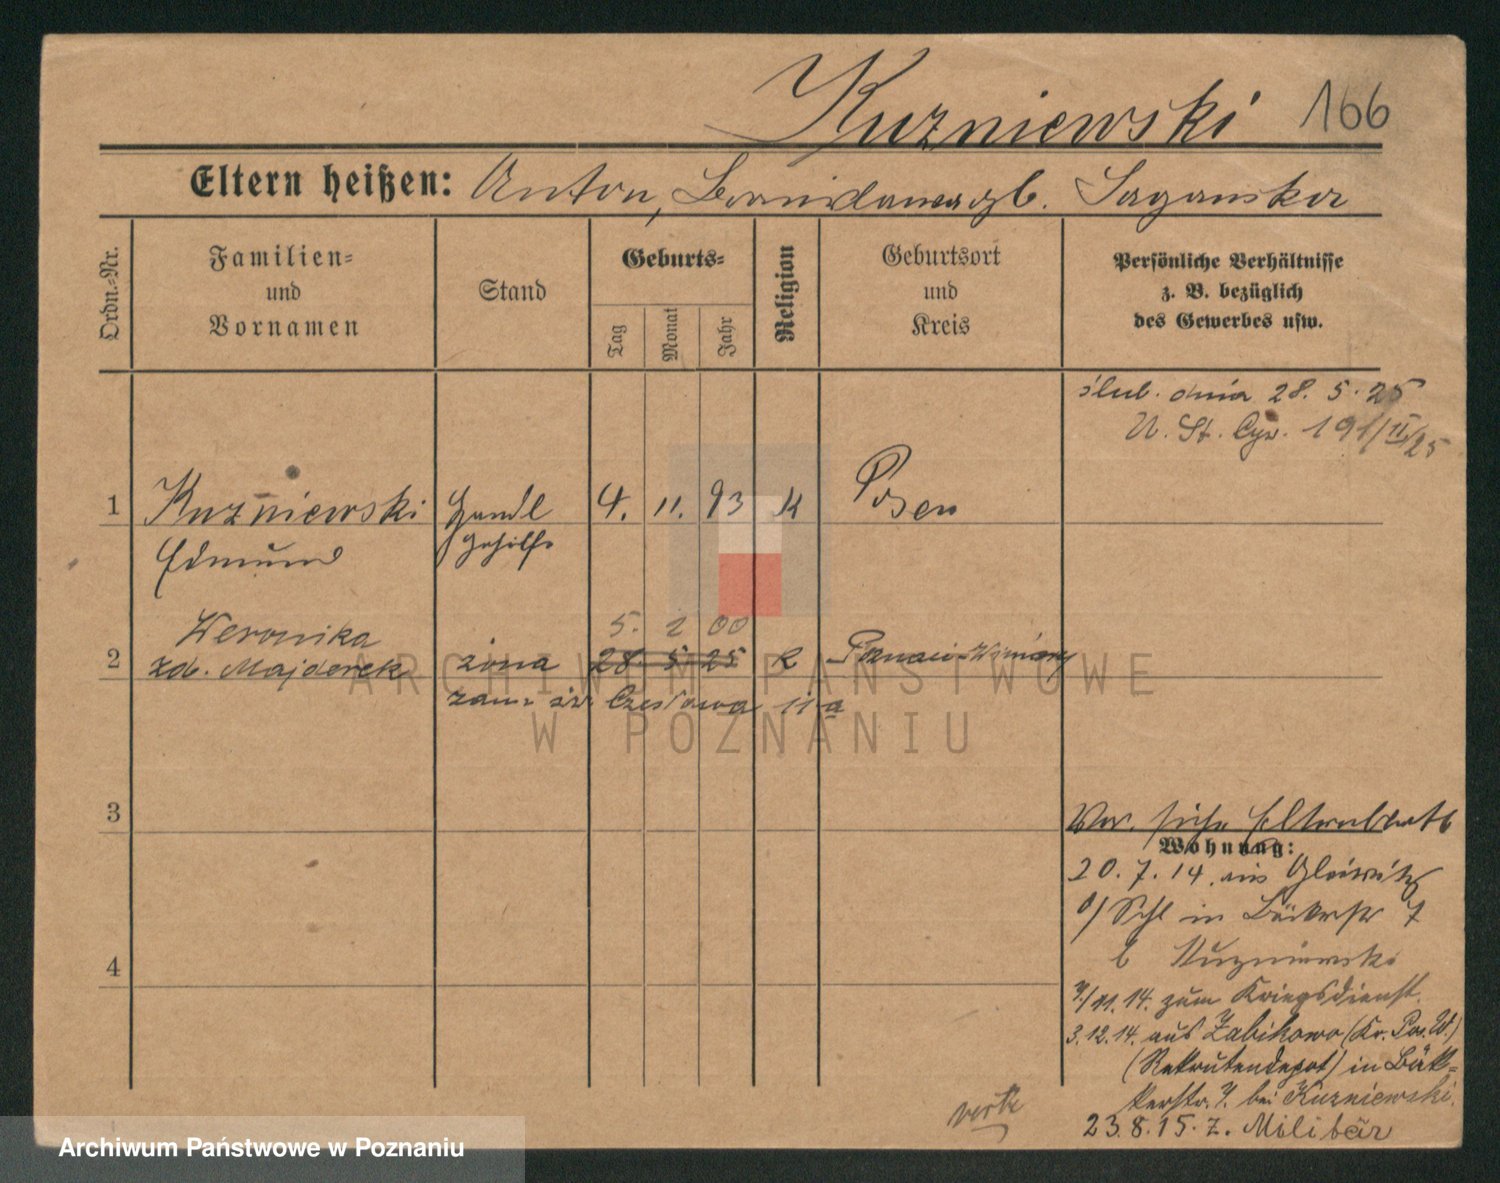 Kuzniewski 166
Eltern heißen: Anton, geb. Saganska
Ordn.=Nr.
Familien=
und
Vornamen
Stand
Geburts=
Tag
Monat
Jahr
Religion
Geburtsort
und
Kreis
Persönliche Verhältnisse
z. B. bezüglich
des Gewerbes usw.
ślub. dnia 28. 5. 25
U. St. Cyw. 191/II/25
1 Kuzniewski Handl 4. 11. 93 K Posen
Edmund gehilfe
Weronika 5. 2 00
2 zd. Majderek żona 28. 5 25 K Poznań-Winiary
zam. św. Czesława 11 a
3
Vor. siehe Elternblatt
Wohnung:
20. 7. 14. aus Gleiwitz
O/Schl in Bäckerstr 7
b Kuzniewski
4
7/11. 14. zum Kriegsdienst.
3. 12. 14. aus Zabikowo (Kr. Pos. W.)
(Rekrutendepot) in Bäk=
kerstr. 7. bei Kuzniewski.
23. 8. 15. z. Militär
verte
ARCHIWUM PAŃSTWOWE
W POZNANIU
Archiwum Państwowe w Poznaniu